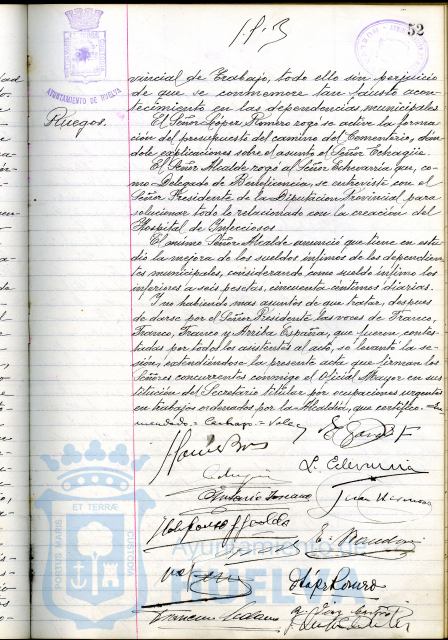 52
AYUNTAMIENTO DE HUELVA
Ruegos.
vincial de Trabajo, todo ello sin perjuicio
de que se conmemore tan fausto acon-
tecimiento en las dependencias municipales
El Señor López Romero rogó se active la forma-
ción del presupuesto del camino del Cementerio, dán-
dole explicaciones sobre el asunto el Señor Echagüe.
El Señor Alcalde rogó al Señor Echevarría que, co-
mo Delegado de Beneficencia, se entreviste con el
Señor Presidente de la Diputación Provincial para
solucionar todo lo relacionado con la creación del
Hospital de Infecciosos
El mismo Señor Alcalde anunció que tiene en estu-
dio la mejora de los sueldos ínfimos de los dependien-
tes municipales, considerando como sueldo ínfimo los
inferiores a seis pesetas, cincuenta céntimos diarias.
Y no habiendo mas asuntos de que tratar, despues
de darse por el Señor Presidente las voces de Franco,
Franco, Franco y Arriba España, que fueron contes-
tadas por todos los asistentes al acto, se levantó la se-
sión, extendiéndose la presente acta que firman los
Señores concurrentes conmigo el Oficial Mayor en sus-
titución del Secretario titular por ocupaciones urgentes
en trabajos ordenados por la Alcaldía, que certifico.=En-
mendado=
=Vale
L. Echevarría
Antonio
Juan
López Romero
Francisco
PORTUS MARIS ET TERRÆ CUSTODIA
Ayuntamiento de
HUELVA